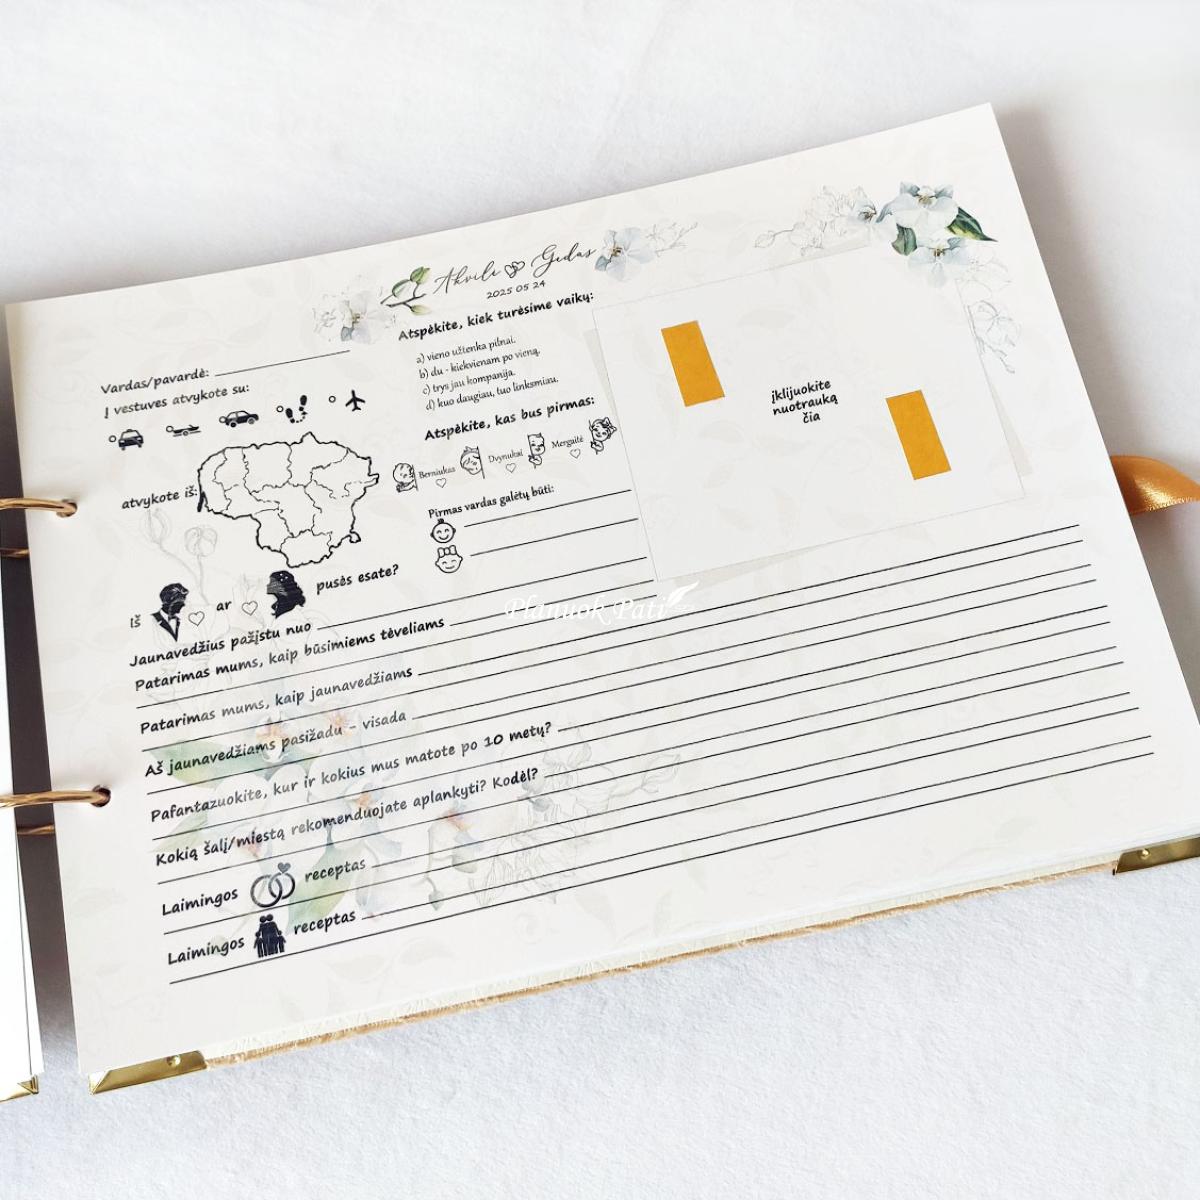 Akvilė Gedas
2025 05 24
Vardas/pavardė:
Į vestuves atvykote su:
atvykote iš:
Iš ar pusės esate?
Atspėkite, kiek turėsime vaikų:
a) vieno užtenka pilnai.
b) du - kiekvienam po vieną.
c) trys jau kompanija.
d) kuo daugiau, tuo linksmiau.
Atspėkite, kas bus pirmas:
Berniukas Dvynukai Mergaitė
Pirmas vardas galėtų būti:
įklijuokite
nuotrauką
čia
Planuok Pati
Jaunavedžius pažįstu nuo
Patarimas mums, kaip būsimiems tėveliams
Patarimas mums, kaip jaunavedžiams
Aš jaunavedžiams pasižadu - visada
Pafantazuokite, kur ir kokius mus matote po 10 metų?
Kokią šalį/miestą rekomenduojate aplankyti? Kodėl?
Laimingos receptas
Laimingos receptas